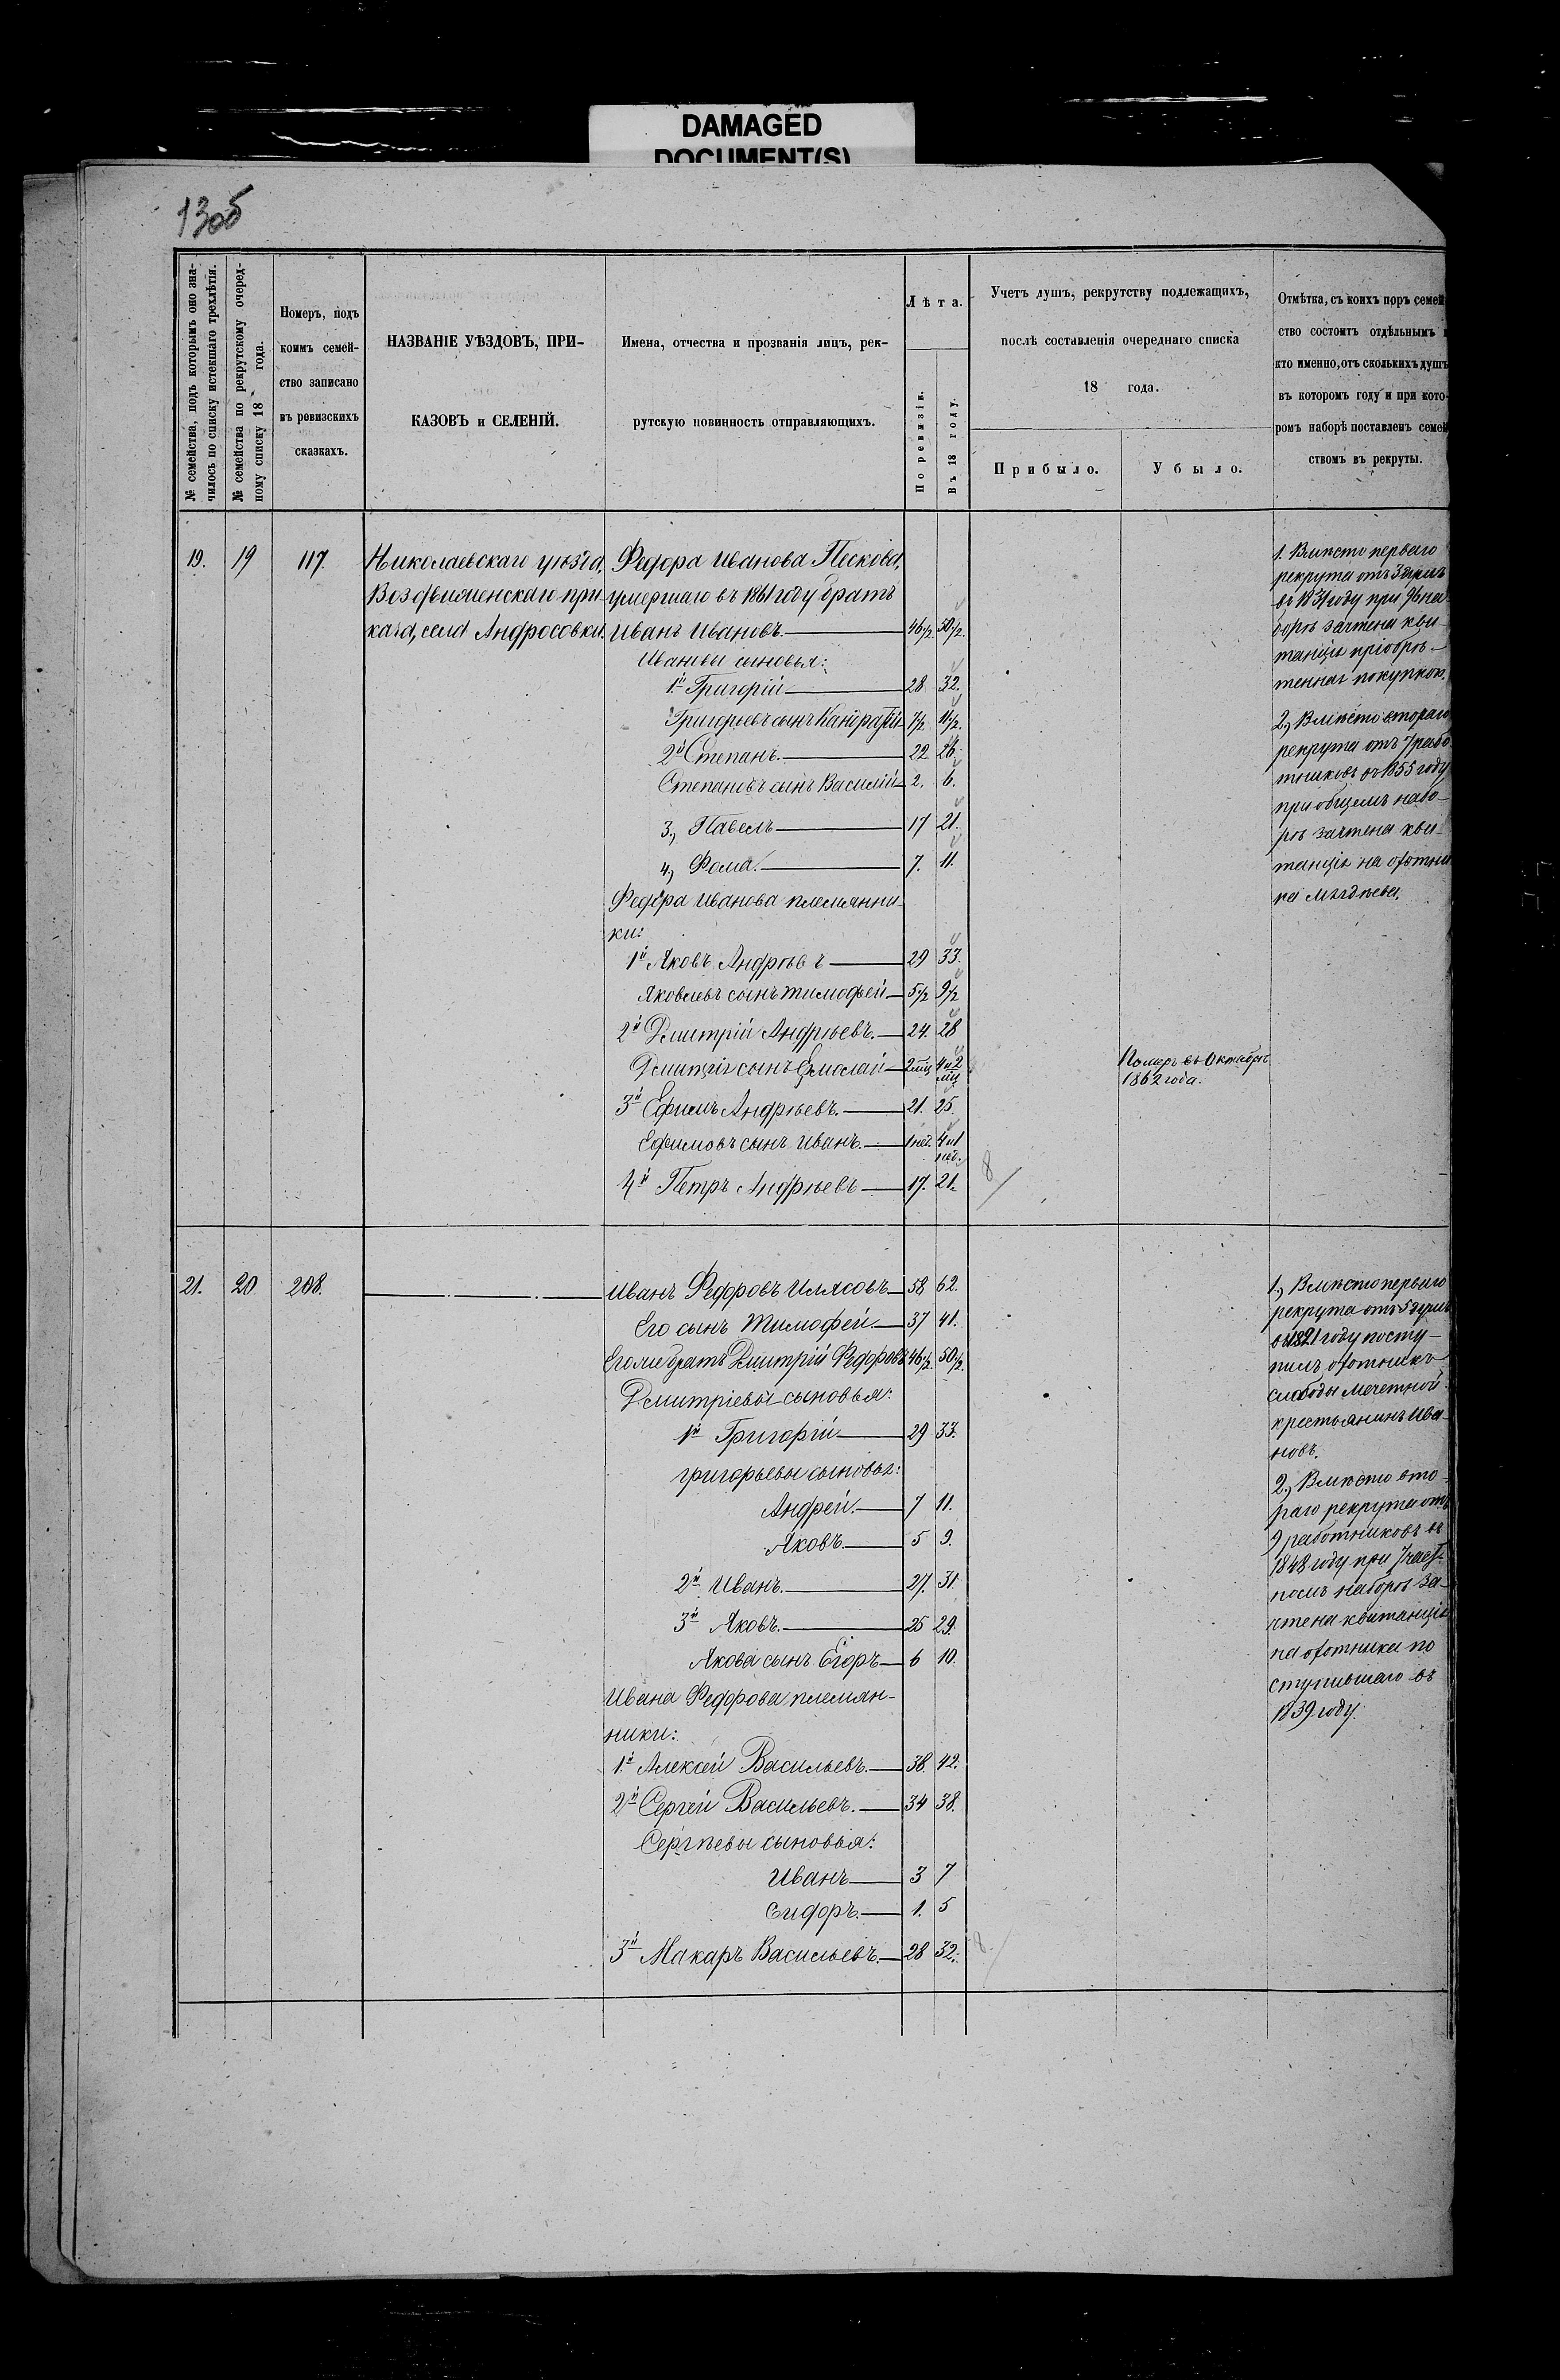 DAMAGED
DOCUMENT(S)
13об
№ семейства, подъ которымъ оно зна-
чилось по списку истекшаго трехлѣтія.
№ семейства по рекрутскому очеред-
ному списку 18 года.
Номеръ, подъ
коимъ семей-
ство записано
въ ревизскихъ
сказкахъ.
НАЗВАНІЕ УѢЗДОВЪ, ПРИ-
КАЗОВЪ и СЕЛЕНІЙ.
Имена, отчества и прозванія лицъ, рек-
рутскую повинность отправляющихъ.
Лѣта.
По ревизіи.
Въ 18 году.
Учетъ душъ, рекрутству подлежащихъ,
послѣ составленія очереднаго списка
18 года.
Прибыло.
Убыло.
Отмѣтка, съ коихъ поръ семей
ство состоитъ отдѣльнымъ и
кто именно, отъ сколькихъ душъ
въ которомъ году и при кото-
ромъ наборѣ поставленъ семей
ствомъ въ рекруты.
19. 19 117.
Николаевскаго уѣзда,
Воздвиженскаго при-
каза, села Андросовки.
Федора Иванова Пескова,
умершаго въ 1861 году братъ
Иванъ Ивановъ. 46½. 50½.
Ивановы сыновья:
1й Григорій 28 32.
Григорьевъ сынъ Кандратій 7½ 11½.
2й Степанъ. 22 26.
Степановъ сынъ Василій 2. 6.
3., Павелъ 17 21.
4., Фома. 7. 11.
Федора Иванова племянни-
ки:
1й Яковъ Андреевъ 29 33.
Яковлевъ сынъ Тимофей 5½ 9½
2й Дмитрій Андрѣевъ. 24. 28
Дмитрія сынъ Ермолай 2 мц 4 и 2
мц
3й Ефимъ Андрѣевъ. 21. 25.
Ефимовъ сынъ Иванъ. 1 нед. 4 и 1
нед.
4й Петръ Андрѣевъ 17. 21.
8
Померъ въ Октябрѣ
1862 года.
1. Вмѣсто перваго
рекрута отъ 3 душъ
въ 1831 году при 96 на-
борѣ зачтена кви-
танція пріобрѣ-
тенная покупкою.
2., Вмѣсто втораго
рекрута отъ 7 рабо
тниковъ въ 1855 году
при общемъ набо-
рѣ зачтена кви-
танція на охотни
ка
21. 20 208.
Иванъ Федоровъ Илясовъ 58 62.
Его сынъ Тимофей. 37 41.
Его же братъ Дмитрій Федоровъ 46½. 50½.
Дмитріевы сыновья:
1й Григорій 29 33.
Григорьевы сыновья:
Андрей. 7 11.
Яковъ. 5 9.
2й Иванъ. 27. 31.
3й Яковъ. 25 29.
Якова сынъ Егоръ 6 10.
Ивана Федорова племян-
ники:
1й Алексѣй Васильевъ. 38. 42.
2й Сергѣй Васильевъ. 34 38.
Сергѣевы сыновья:
Иванъ 3 7
Сидоръ. 1. 5
3й Макаръ Васильевъ. 28 32.
8
1., Вмѣсто перваго
рекрута отъ 5 душъ
въ 1821 году посту-
пилъ охотникъ
слободы Мечетной
крестьянинъ Ива-
новъ.
2., Вмѣсто вто-
раго рекрута отъ
9 работниковъ въ
1848 году при 7 част-
номъ наборѣ за-
чтена квитанція
на охотника по
ступившаго въ
1839 году.